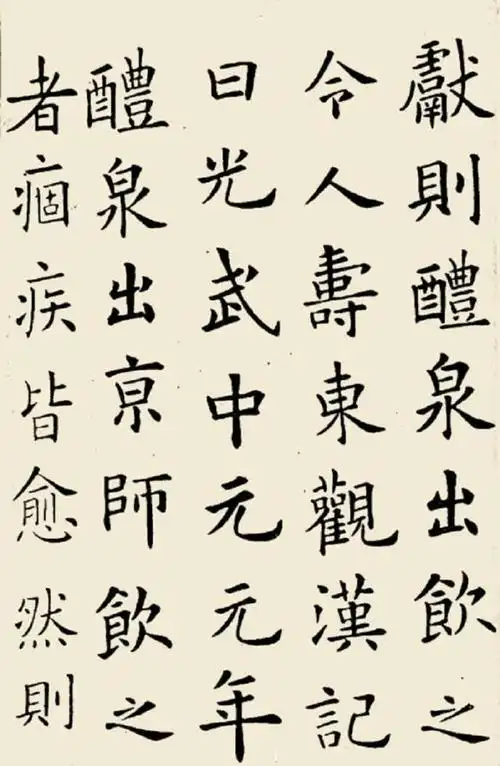 獻則醴泉出飲之
令人壽東觀漢記
曰光武中元元年
醴泉出京師飲之
者痼疾皆愈然則